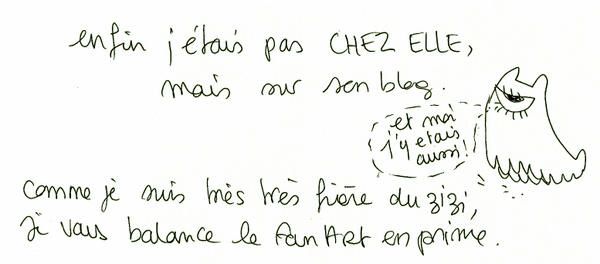 enfin j'étais pas CHEZ ELLE,
mais sur son blog.
et moi
j'y etais
aussi!
comme je suis très très fière du zizi,
je vous balance le fanArt en prime.